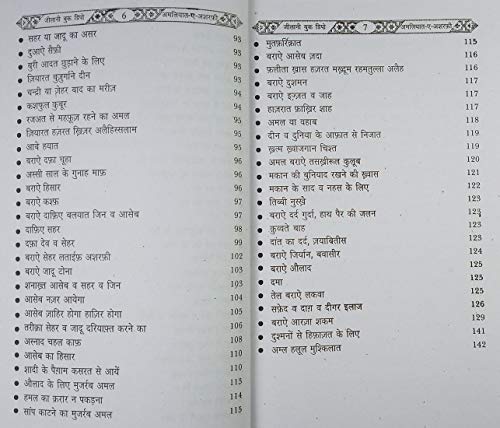 जीलानी बुक डिपो 6 अमलियात-ए-अशरफ़ी
सहर या जादू का असर 93
दुआऐ सैफ़ी 93
बुरी आदत छुड़ाने के लिए 93
ज़ियारत बुज़ुर्माने दीन 94
चन्द्री या ज़ेहर बाद का मरीज़ 94
कशफुल कुबूर 94
रजअत से महफूज़ रहने का अमल 94
ज़ियारत हज़रत ख़िज़र अलैहिस्सलाम 95
आबे हयात 95
बराऐ दफ़ा चूहा 96
अस्सी साल के गुनाह माफ़ 96
बराऐ हिसार 96
बराऐ कश्फ़ 97
बराऐ दाफ़िए बलयात जिन व आसेब 97
दाफ़िए सहर 98
दफ़ा देव व सेहर 99
बराऐ सेहर लताईफ़ अशरफ़ी 102
बराऐ जादू टोना 103
शनाख़्त आसेब व सहर व जिन 103
आसेब नज़र आयेगा 104
आसेब ज़ाहिर होगा हाज़िर होगा 105
तरीक़ा सेहर व जादू दरियाफ़्त करने का 106
अस्नाद चहल काफ़ 110
आसेब का हिसार 110
शादी के पैग़ाम कसरत से आयें 110
औलाद के लिए मुजर्रब अमल 113
हमल का क़रार न पकड़ना 114
सांप काटने का मुजर्रब अमल 115
जीलानी बुक डिपो 7 अमलियात-ए-अशरफ़ी
मुतफ़र्रिक़ात 115
बराऐ आसेब ज़दा 116
फ़लीता ख़ास हज़रत मख़्दूम रहमतुल्ला अलैह 116
बराऐ दुशमन 116
बराऐ इज़्ज़त व जाह 117
हाज़रात फ़ाख़िर शाह 117
अमल या वहाब 118
दीन व दुनिया के आफ़ात से निजात 119
ख़त्म ख़्वाजगान चिश्त 119
अमल बराऐ तसख़ीरुल कुलूब 120
मकान की बुनियाद रखने की ख़्वास 121
मकान के साद व नहस के लिए 122
तिब्बी नुस्ख़े 123
बराऐ दर्द गुर्दा, हाथ पैर की जलन 123
कुव्वते बाह 123
दांत का दर्द, ज़याबितीस 123
बराऐ जिर्यान, बवासीर 125
बराऐ औलाद 125
दमा 125
तेल बराऐ लकवा 125
सफ़ेद व दाग़ व दीगर इलाज 126
बराऐ आरज़ा शकम 129
दुश्मनों से हिफ़ाज़त के लिए 141
अम्ल हलूल मुश्किलात 142